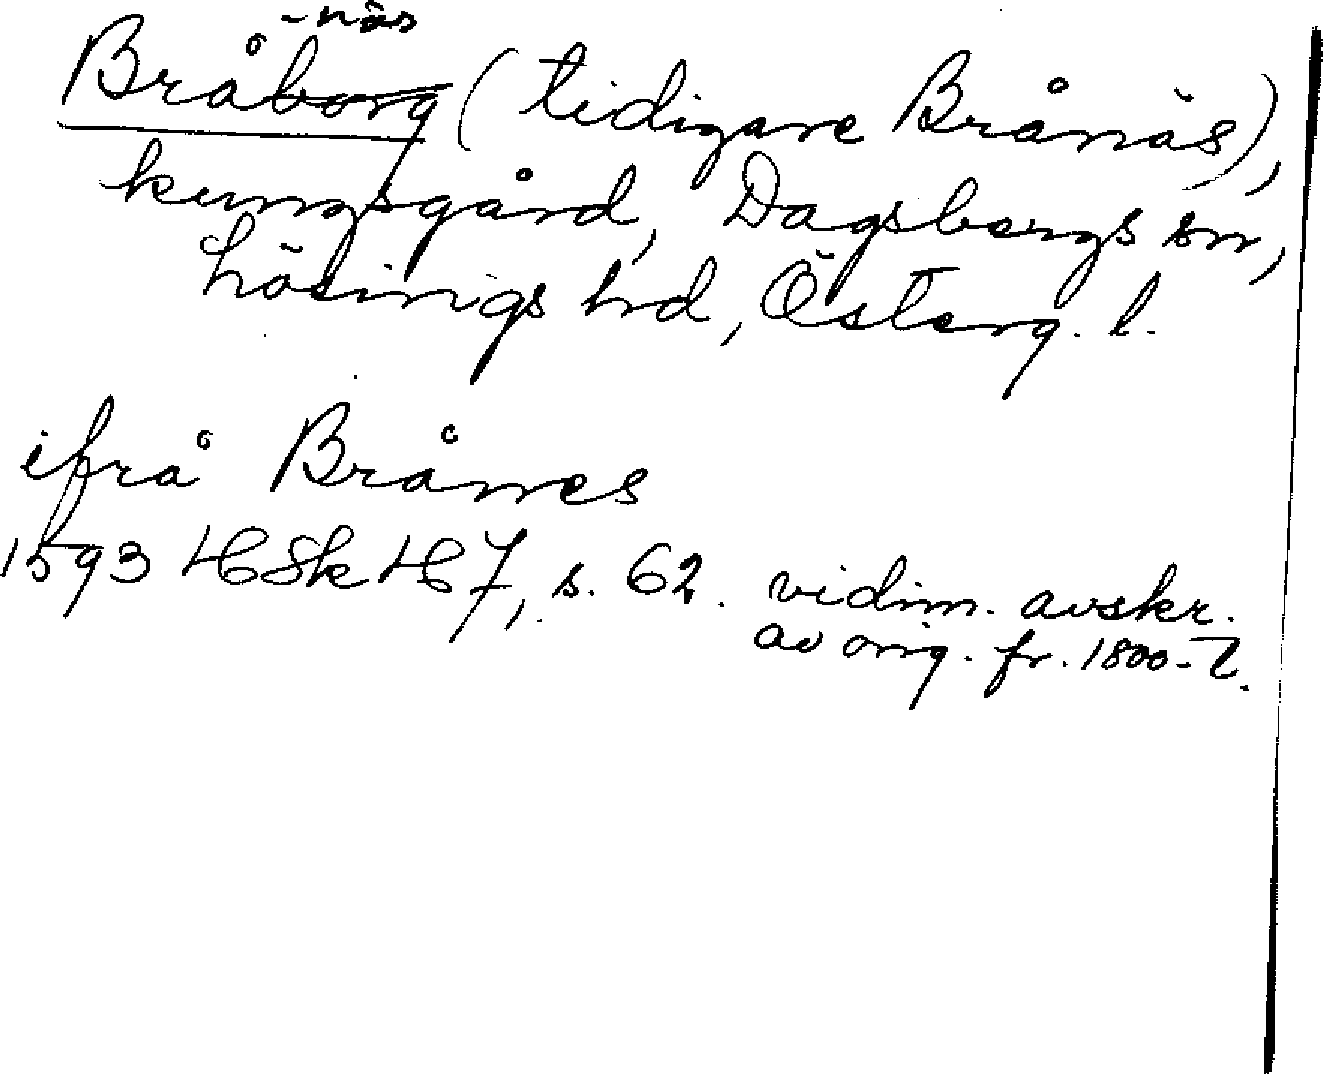 -näs
Bråborg (tidigare Brånäs),
kungsgård, Dagsbergs sn,
Lösings hd, Österg. l.
ifrå Brånes
1593 HSk H 7, s. 62. vidim. avskr.
av orig. fr. 1800-t.